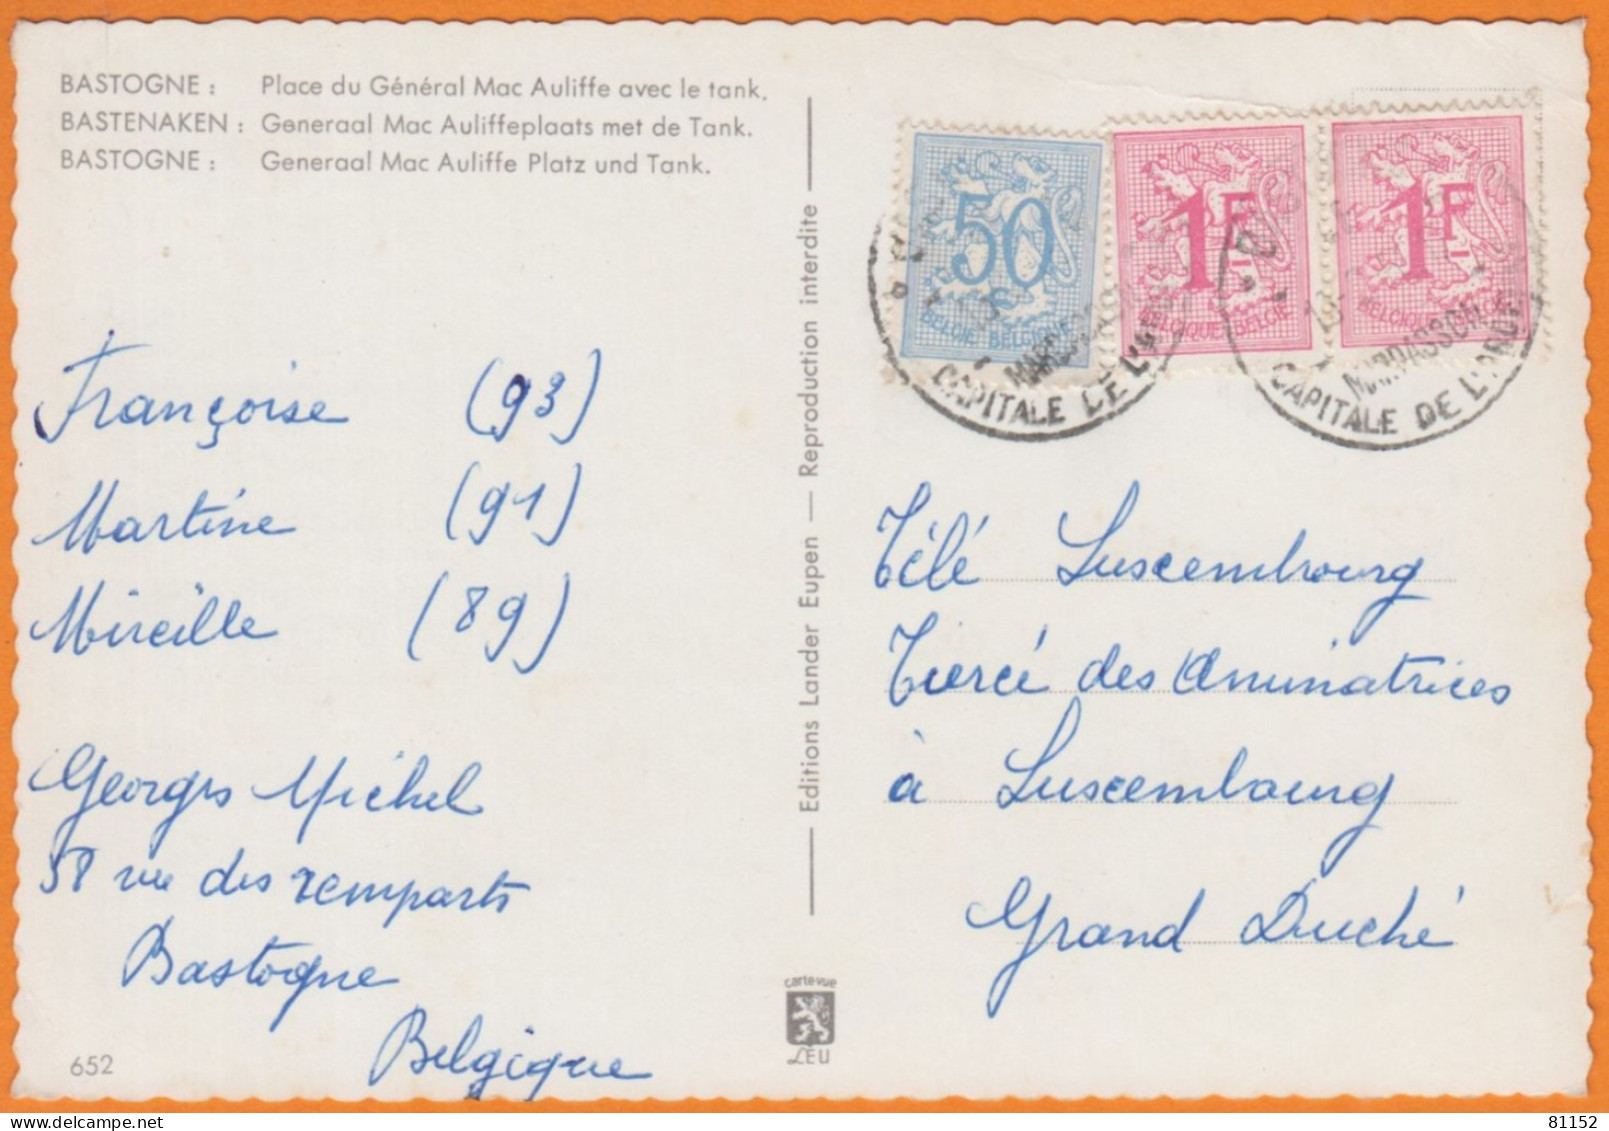 BASTOGNE : Place du Général Mac Auliffe avec le tank.
BASTENAKEN : Generaal Mac Auliffeplaats met de Tank.
BASTOGNE : Generaal Mac Auliffe Platz und Tank.
Françoise (93)
Martine (91)
Mireille (89)
Georges Michel
58 rue des remparts
Bastogne
Belgique
652
Editions Lander Eupen — Reproduction interdite
carte-vue
LEU
50
BELGIE BELGIQUE
1F
BELGIQUE BELGIE
1F
BELGIQUE
MARDASSON
CAPITALE DE L'
MARDASSON
CAPITALE DE L'
Télé Luxembourg
Tiercé des Animatrices
à Luxembourg
Grand Duché
81152